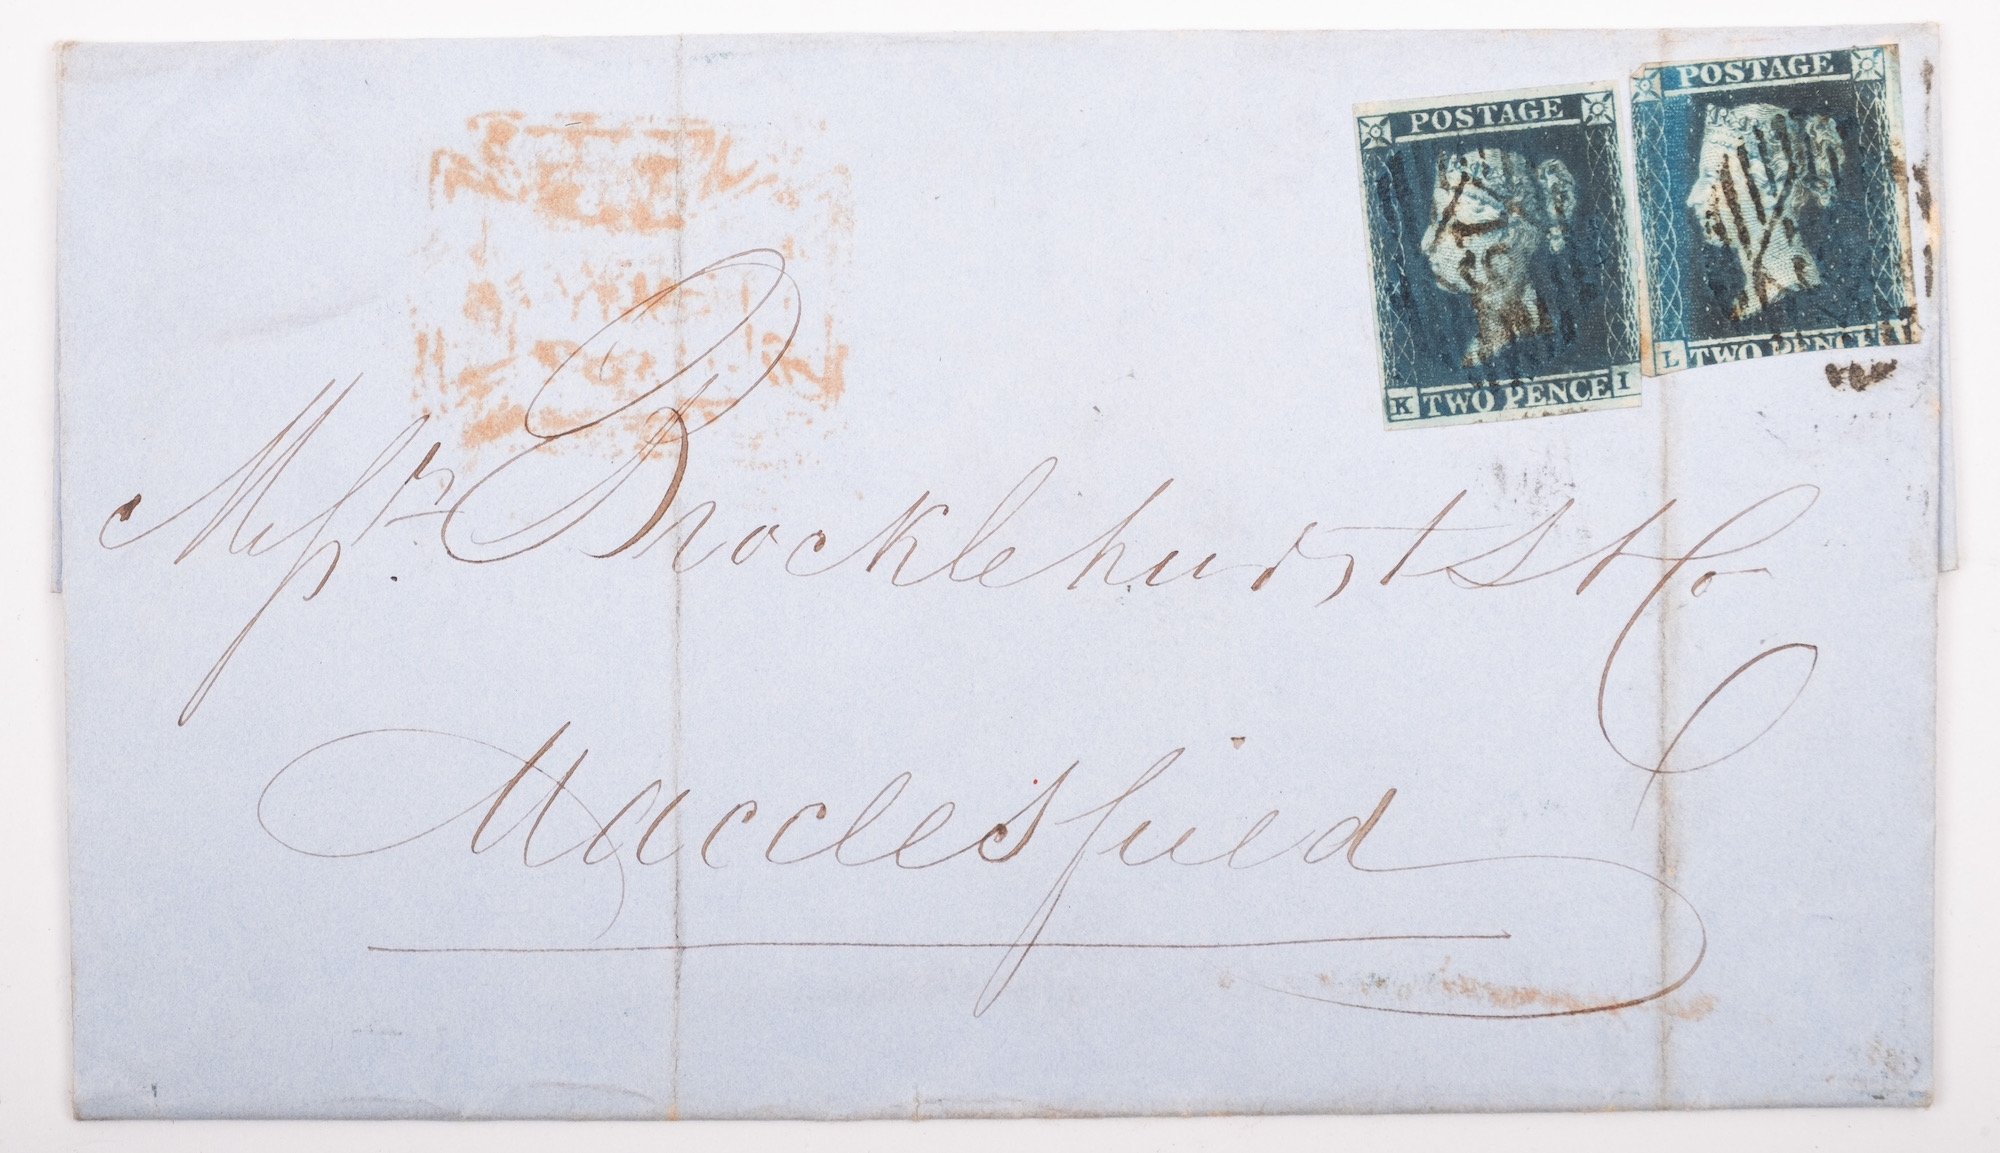 POSTAGE
K TWO PENCE I
POSTAGE
L TWO PENCE
Messrs. Brocklehurst & Co
Macclesfield